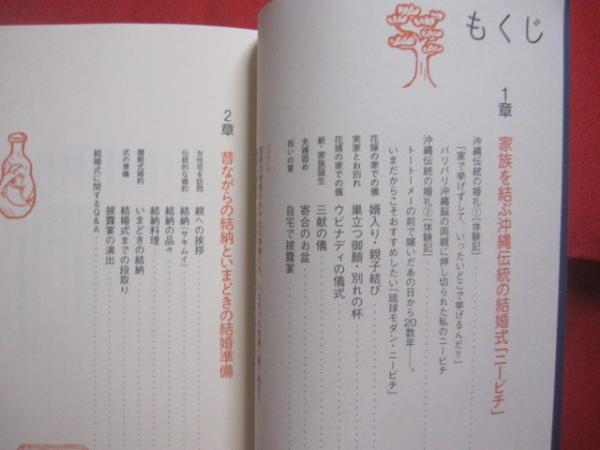 もくじ
1章 家族を結ぶ沖縄伝統の結婚式「ニービチ」
沖縄伝統の婚礼①【体験記】
「家で挙げずして、いったいどこで挙げるんだ!!」
バリバリ沖縄脳の両親に押し切られた私のニービチ
沖縄伝統の婚礼②【体験記】
トートーメーの前で嫁いだあの日から20数年――。
いまだからこそおすすめしたい「琉球モダン・ニービチ」
花嫁の家での儀 婿入り・親子結び
実家とお別れ 巣立つ御願・別れの杯
花婿の家での儀 ウビナディの儀式
新・家族誕生 三献の儀
夫婦固め 寄合のお盆
祝いの宴 自宅で披露宴
2章 昔ながらの結納といまどきの結婚準備
女性宅を訪問 親への挨拶
伝統的な婚約 結納(サキムイ)
結納の品々
結納料理
簡略式婚約 いまどきの結納
式の準備 結婚式までの段取り
披露宴の演出
結婚式に関するQ&A